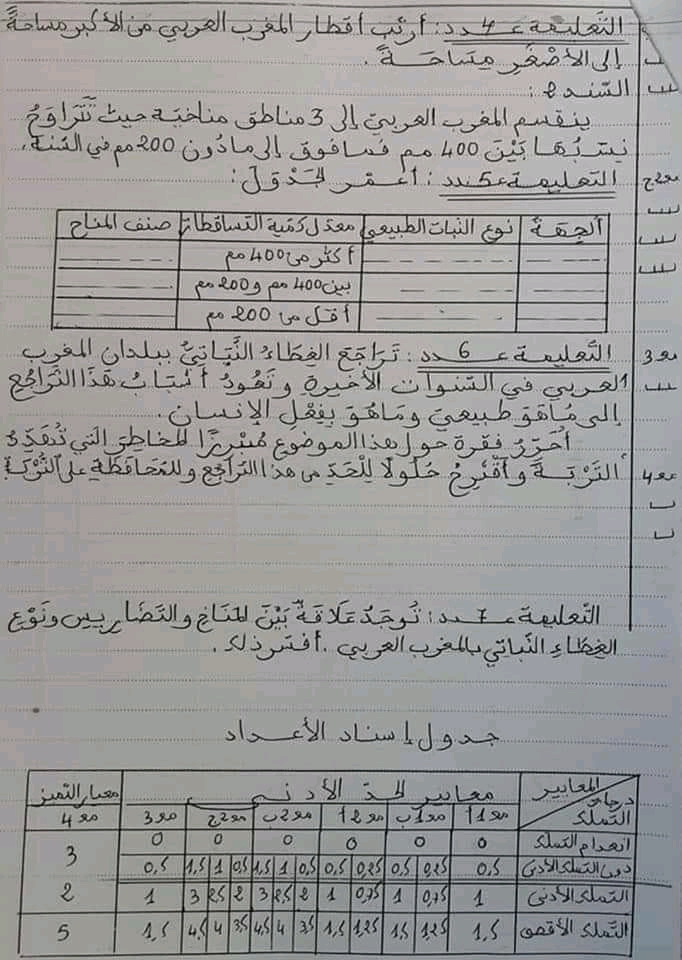 التعليمة عـ4ـدد: أرتب أقطار المغرب العربي من الأكبر مساحةً
إلى الأصْغَرِ مِسَاحَـةً.
السّند 2:
ينقسم المغرب العربيّ إلى 3 مناطق مناخيّة حيث تَتَرَاوَحُ
نسبُهَا بَيْنَ 400 مم فمافوق إلى مادُون 200 مم في السّنة.
مع2ج
التعليمة عـ5ـدد: أعمّر الجَدْوَلَ:
الجهَة | نوع النبات الطبيعي | معدل كمية التساقطات | صنف المناخ
أكثر من 400 مم
بين 400 مم و 200 مم
أقل من 200 مم
مع3
التّعليمة عـ6ـدد: تَرَاجَعَ الغِطَاءُ النّبَاتيُّ ببلدان المغرب
العربي في السّنوات الأخيرةِ وتَعُودُ أسْبَابُ هَذَا التّرَاجُعِ
إلى مَاهُوَ طبيعيّ ومَاهُوَ بِفِعْلِ الإنسان.
أُحَرِّرُ فقرة حول هذا الموضوع مُبْرِزًا المخاطِرَ التي تُهَدِّدُ
مع4
التّرْبَةَ وأقْتَرِحُ حُلُولًا لِلْحَدِّ من هذا التراجع وللمُحَافَظَةِ على التُّرْبَة
التّعليمة عـ7ـدد: تُوجَدُ عَلَاقَةٌ بَيْنَ المَنَاخِ والتضَاريس ونَوْعِ
الغِطَاءِ النّبَاتي بالمغرب العربي. أفسّر ذلك.
جدول إسناد الأعداد
المعايير | معايير الحدّ الأدنى | معيار التميز
درجات التملك | مع1أ | مع1ب | مع2أ | مع2ب | مع2ج | مع3 | مع4
انعدام التملك | 0 | 0 | 0 | 0 | 0 | 0 | 3
دون التملك الأدنى | 0,5 | 0,25 | 0,5 | 0,25 | 0,5 | 0,5 | 1 | 1,5 | 0,5 | 1 | 1,5 | 0,5
التملك الأدنى | 1 | 0,75 | 1 | 0,75 | 1 | 2 | 2,5 | 3 | 2 | 2,5 | 3 | 1 | 2
التملك الأقصى | 1,5 | 1,25 | 1,5 | 1,25 | 1,5 | 3,5 | 4 | 4,5 | 3,5 | 4 | 4,5 | 1,5 | 5